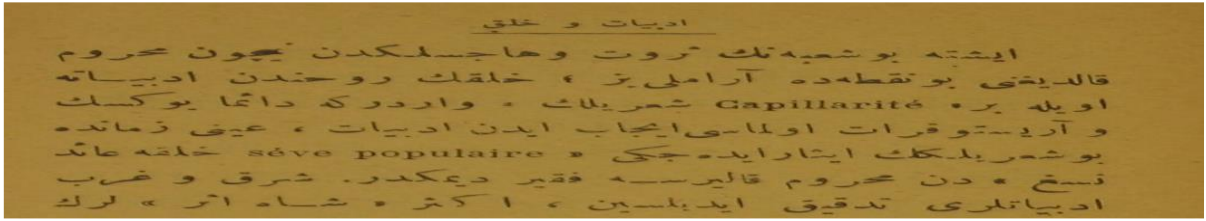 ادبیات و خلق
ایشته بو شعبه نك ثروت وهاجسلكدن نیچون محروم
قالدیغنی بو نقطه ده آراملی یز ، خلقك روحندن ادبیــاته
اویله بر « Capillarité شعریلك » واردر که دائما یوکسك
و آریستوقرات اولماسی ایجاب ایدن ادبیات ، عینی زمانده
بو شعریلكك ایثار ایده جكی « séve populaire خلقه عائد
نسغ » دن محروم قالیرســه فقیر دیمكدر. شرق و غرب
ادبیاتلری تدقیق ایدیلسین ، اكثر « شــاه اثر » لرك